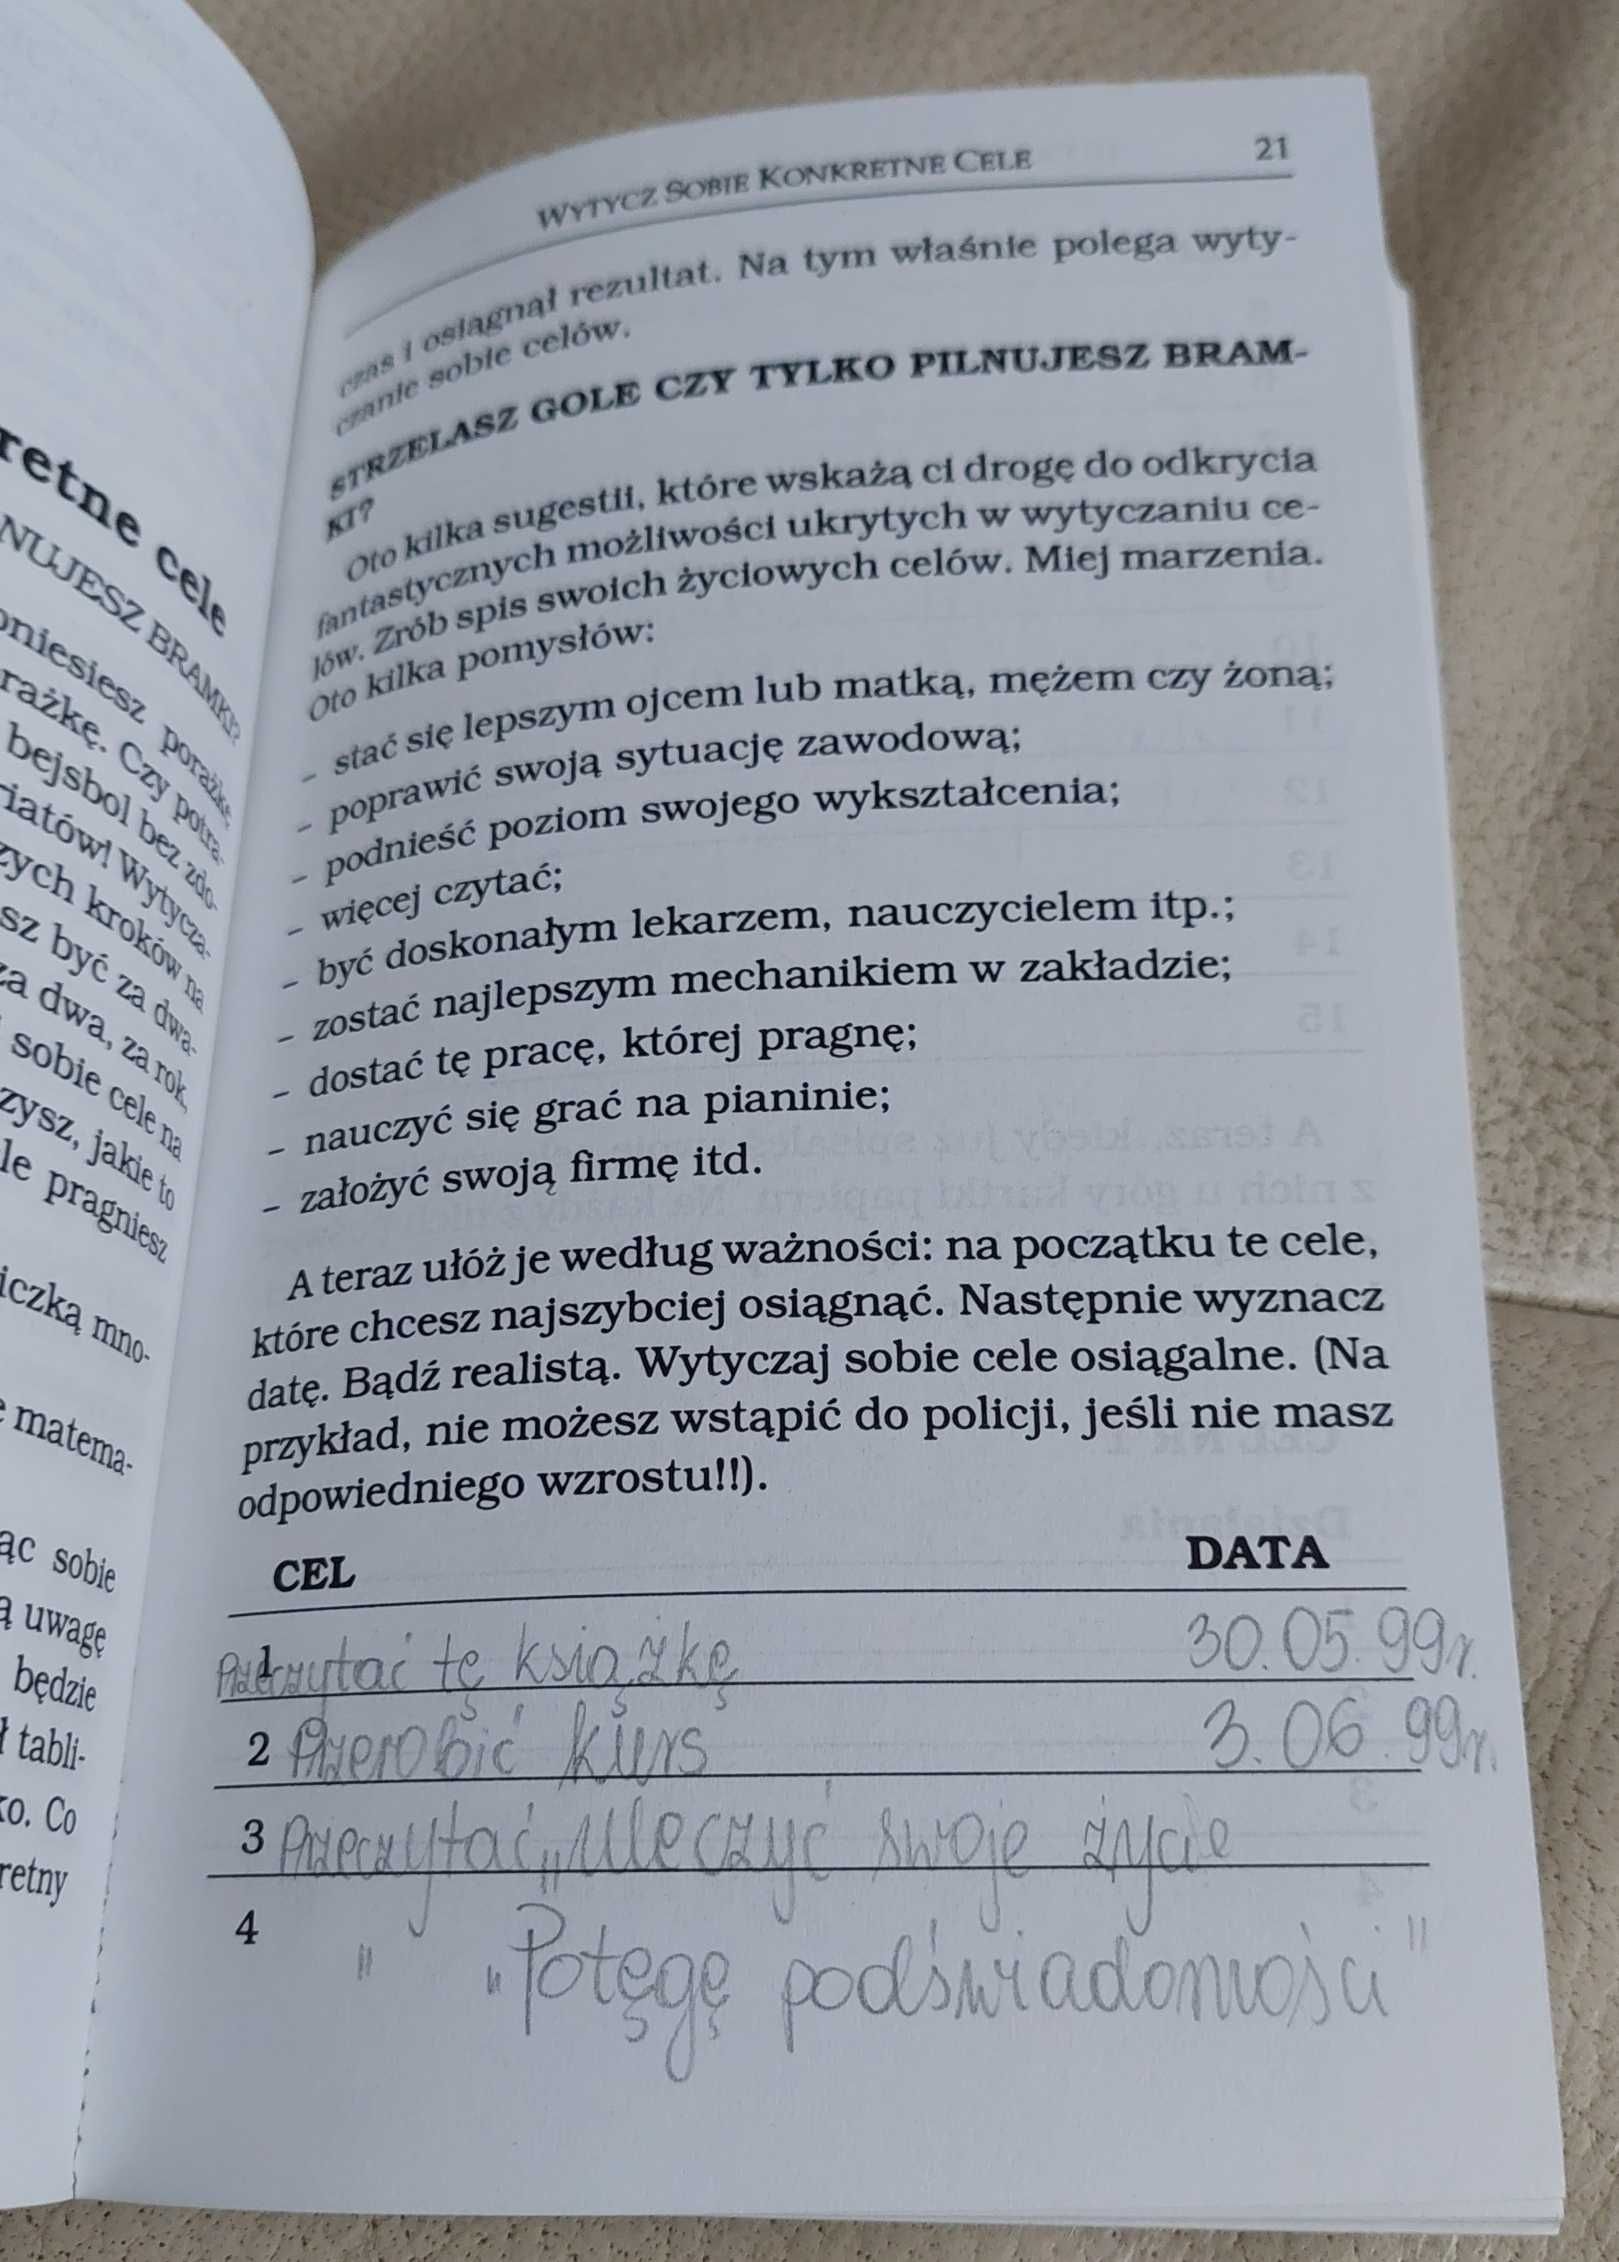 retne cele
NUJESZ BRAMKI?
oniesiesz porażkę,
rażkę. Czy potra-
bejsbol bez zdo-
riatów! Wytycza-
zych kroków na
sz być za dwa-
za dwa, za rok,
sobie cele na
zysz, jakie to
le pragniesz
iczką mno-
matema-
ąc sobie
ą uwagę
będzie
ł tabli-
ko. Co
retny
WYTYCZ SOBIE KONKRETNE CELE 21
czas i osiągnął rezultat. Na tym właśnie polega wyty-
czanie sobie celów.
STRZELASZ GOLE CZY TYLKO PILNUJESZ BRAM-
KI?
Oto kilka sugestii, które wskażą ci drogę do odkrycia
fantastycznych możliwości ukrytych w wytyczaniu ce-
lów. Zrób spis swoich życiowych celów. Miej marzenia.
Oto kilka pomysłów:
- stać się lepszym ojcem lub matką, mężem czy żoną;
- poprawić swoją sytuację zawodową;
- podnieść poziom swojego wykształcenia;
- więcej czytać;
- być doskonałym lekarzem, nauczycielem itp.;
- zostać najlepszym mechanikiem w zakładzie;
- dostać tę pracę, której pragnę;
- nauczyć się grać na pianinie;
- założyć swoją firmę itd.
A teraz ułóż je według ważności: na początku te cele,
które chcesz najszybciej osiągnąć. Następnie wyznacz
datę. Bądź realistą. Wytyczaj sobie cele osiągalne. (Na
przykład, nie możesz wstąpić do policji, jeśli nie masz
odpowiedniego wzrostu!!).
CEL DATA
1 Przeczytać tę książkę 30.05.99r.
2 Przerobić kurs 3.06.99r.
3 Przeczytać „Uleczyć swoje życie
4 " „Potęgę podświadomości"